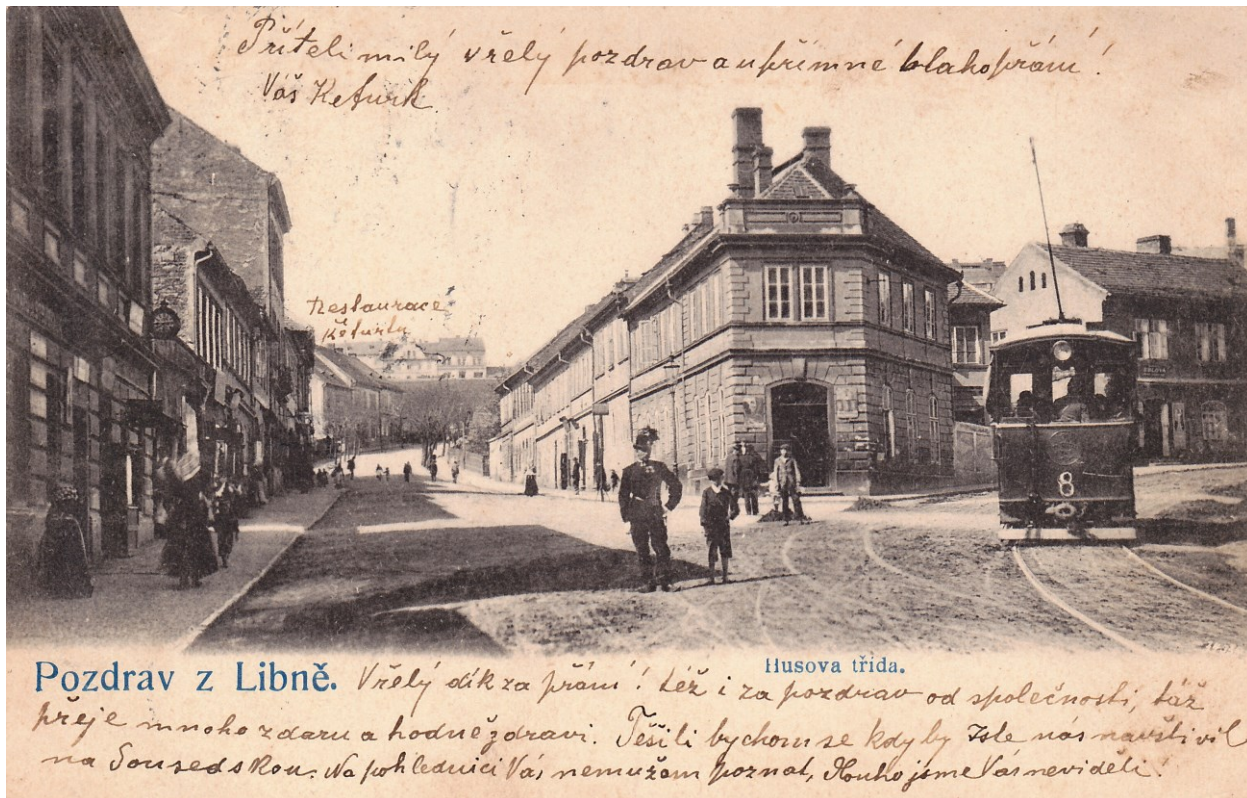 Příteli milý vřelý pozdrav a upřímné blahopřání!
Váš Keturk
Restaurace
8
Pozdrav z Libně.
Husova třída.
Vřelý dík za přání! též i za pozdrav od společnosti, táž
přeje mnoho zdaru a hodně zdraví. Těšili bychom se kdyby Jste nás navštivil
na Sousedskou. Na pohlednici Vás nemužem poznat, Dlouho jsme Vás neviděli!